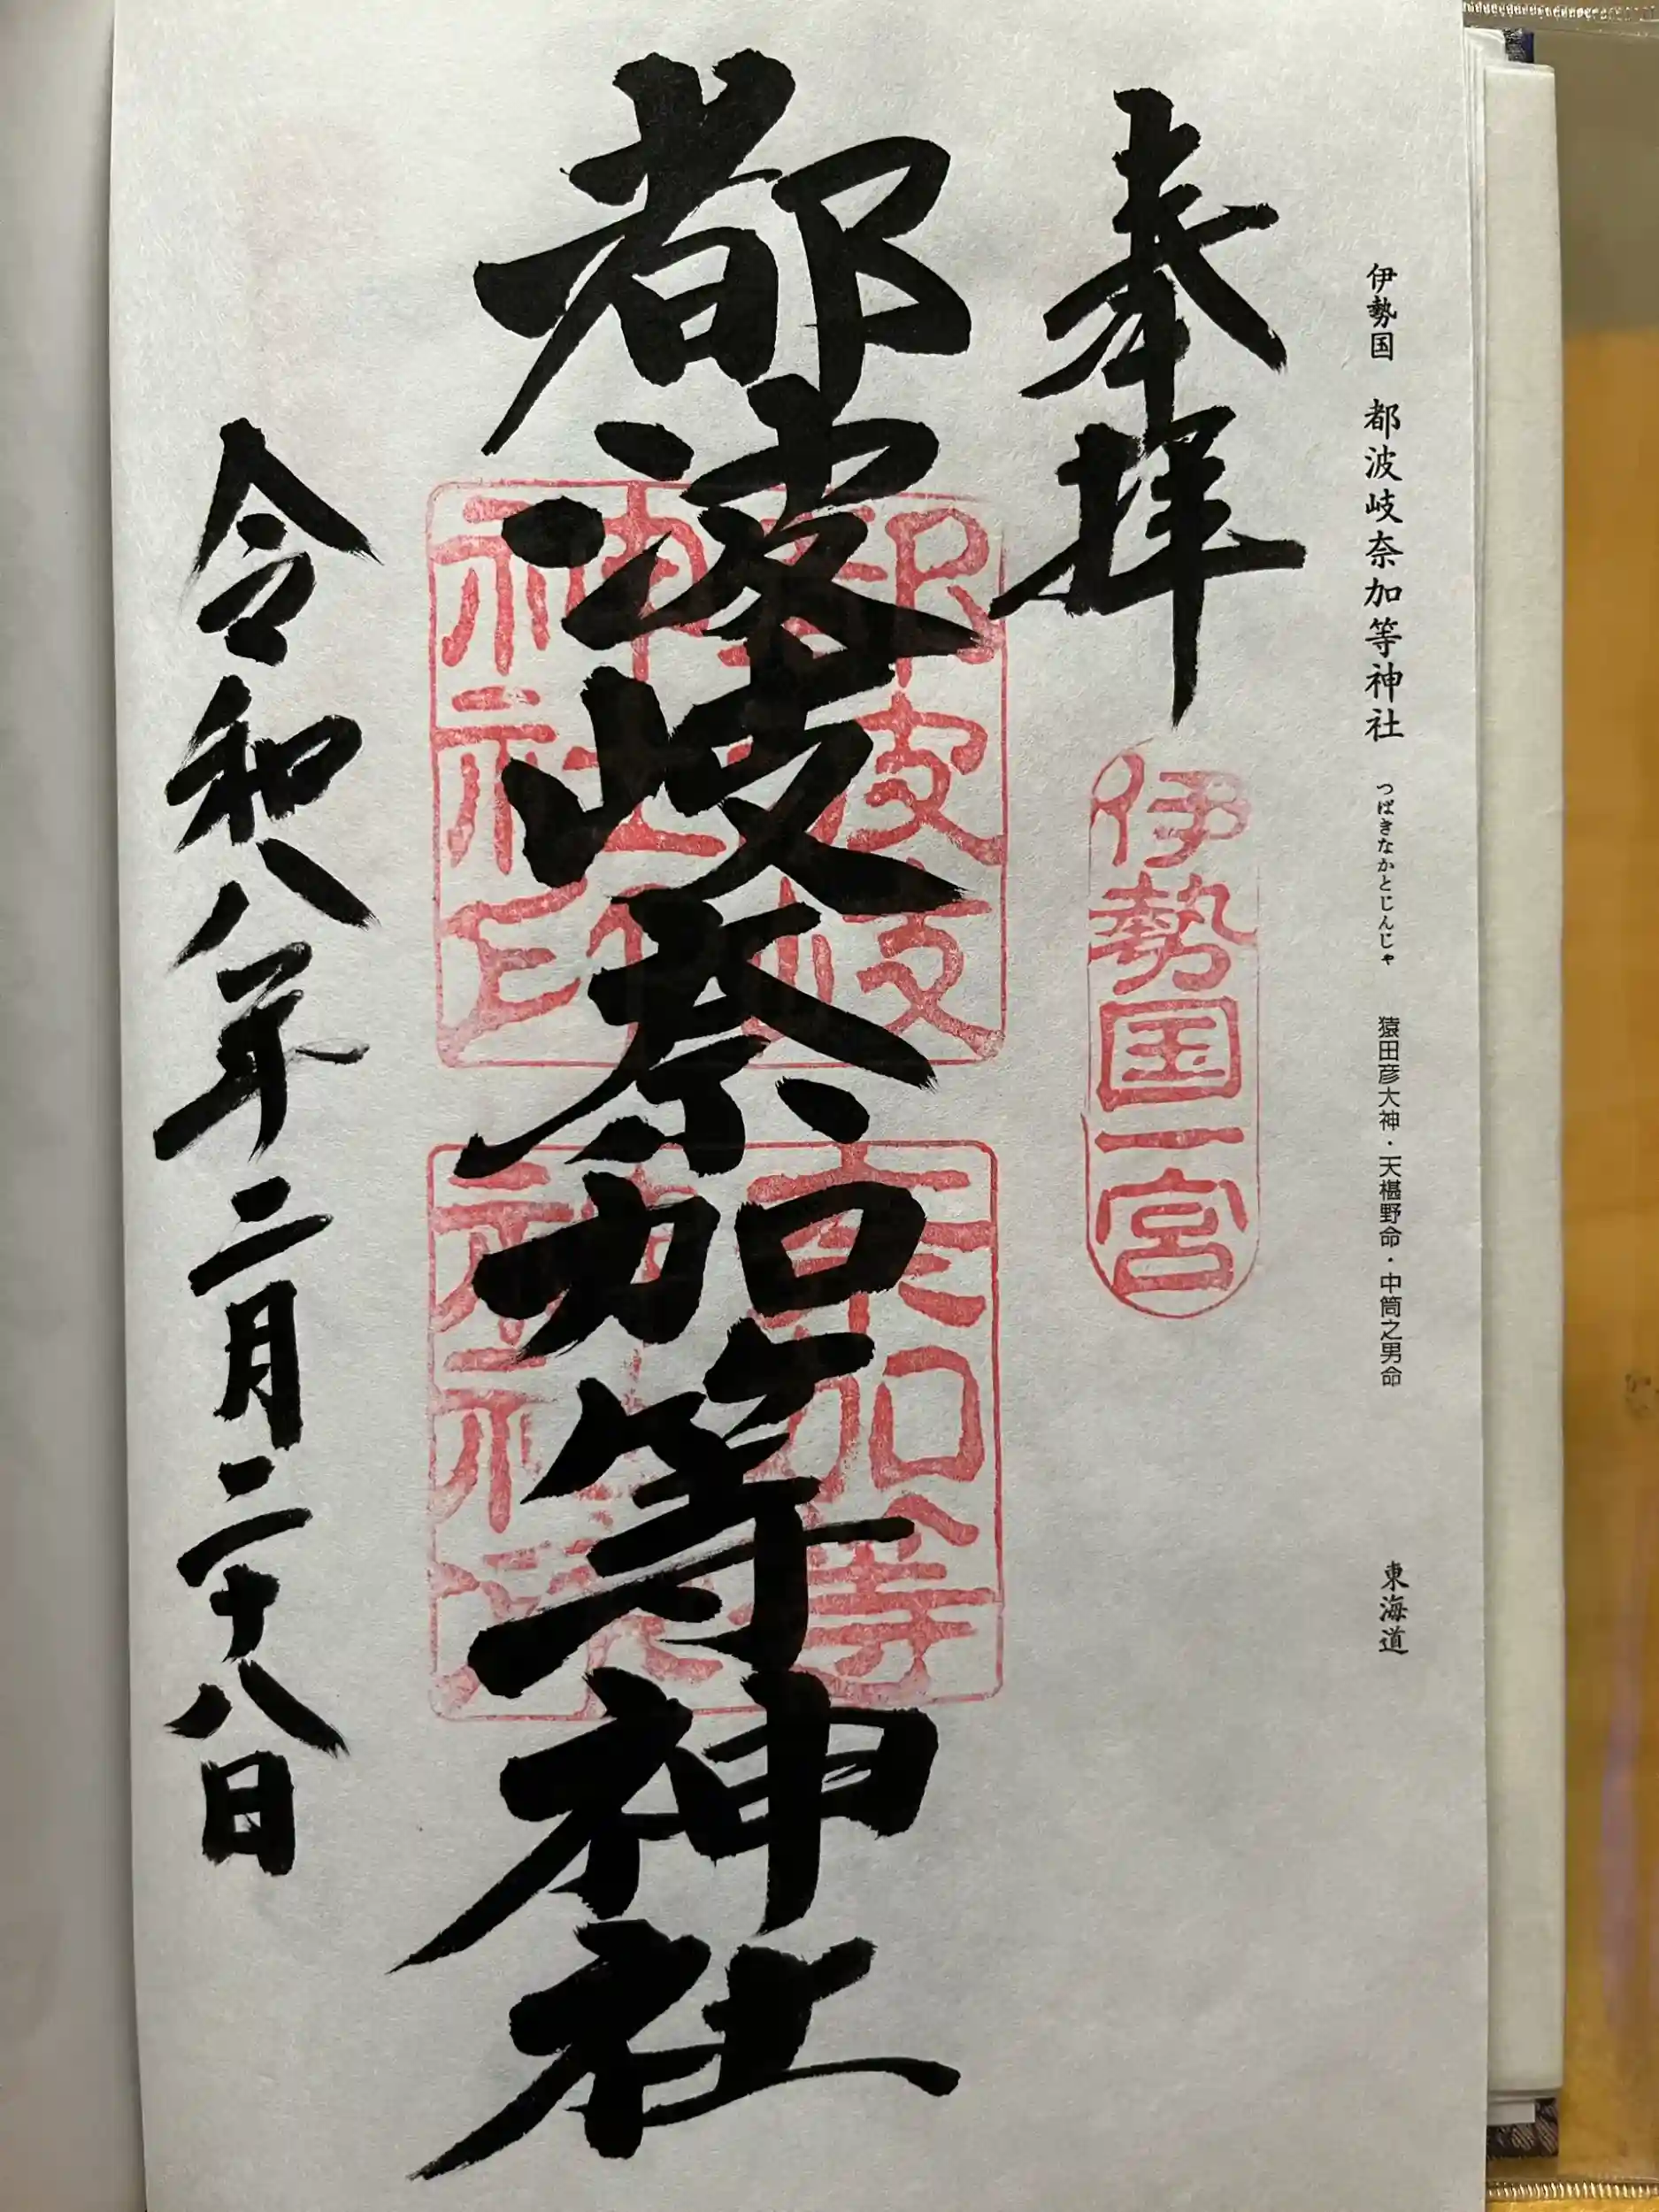 伊勢国 都波岐奈加等神社 つばきなかとじんじゃ 猿田彦大神・天椹野命・中筒之男命 東海道
奉拝
伊勢国一宮
都波岐奈加等神社
都波岐
神社印
奈加等
神社
令和八年二月二十八日